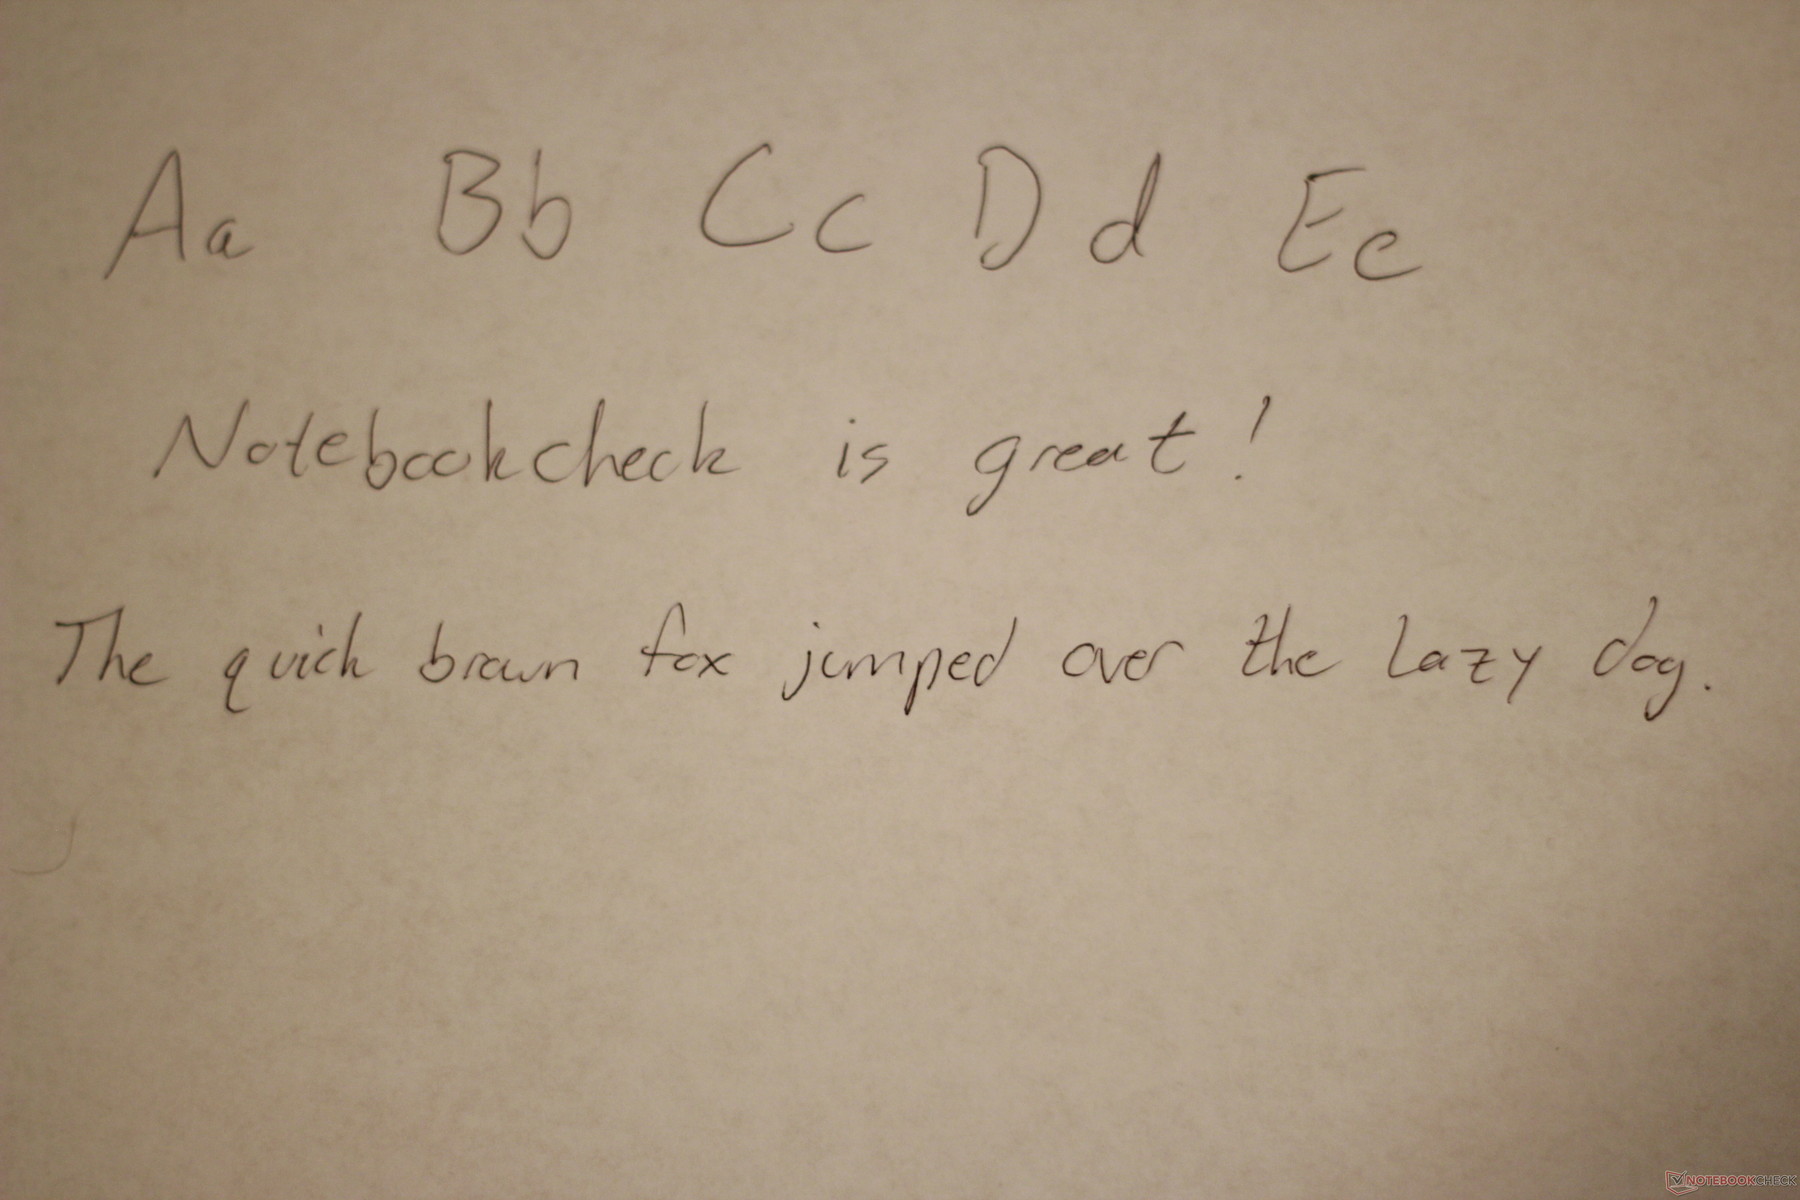 Aa Bb Cc Dd Ee
Notebookcheck is great!
The quick brown fox jumped over the lazy dog.
NOTEBOOKCHECK